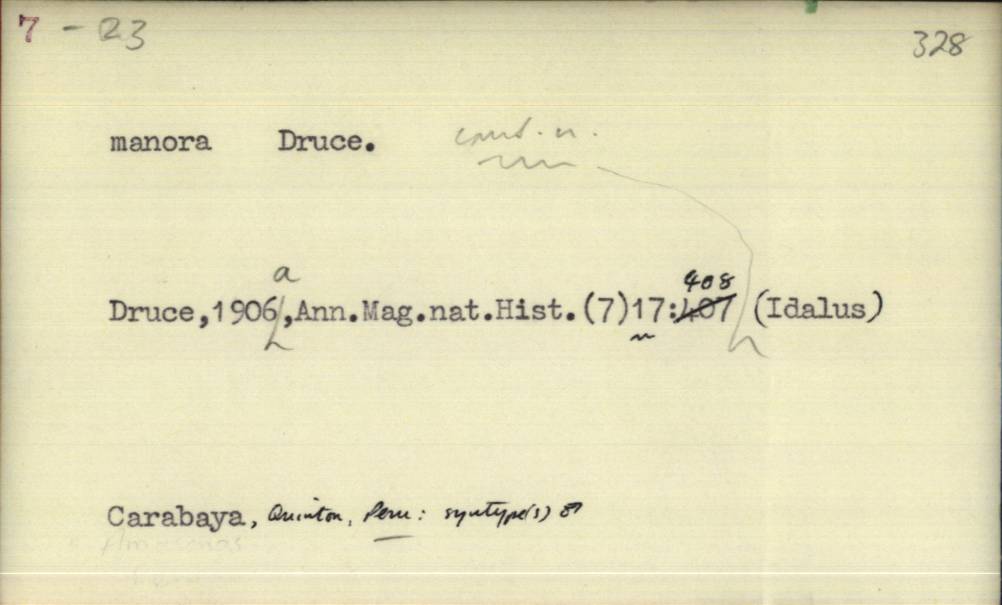 7 - 23
328
manora Druce. comb. n.
a
408
Druce,1906,Ann.Mag.nat.Hist.(7)17:407 (Idalus)
Carabaya, Quinton, Peru: syntype(s) ♂